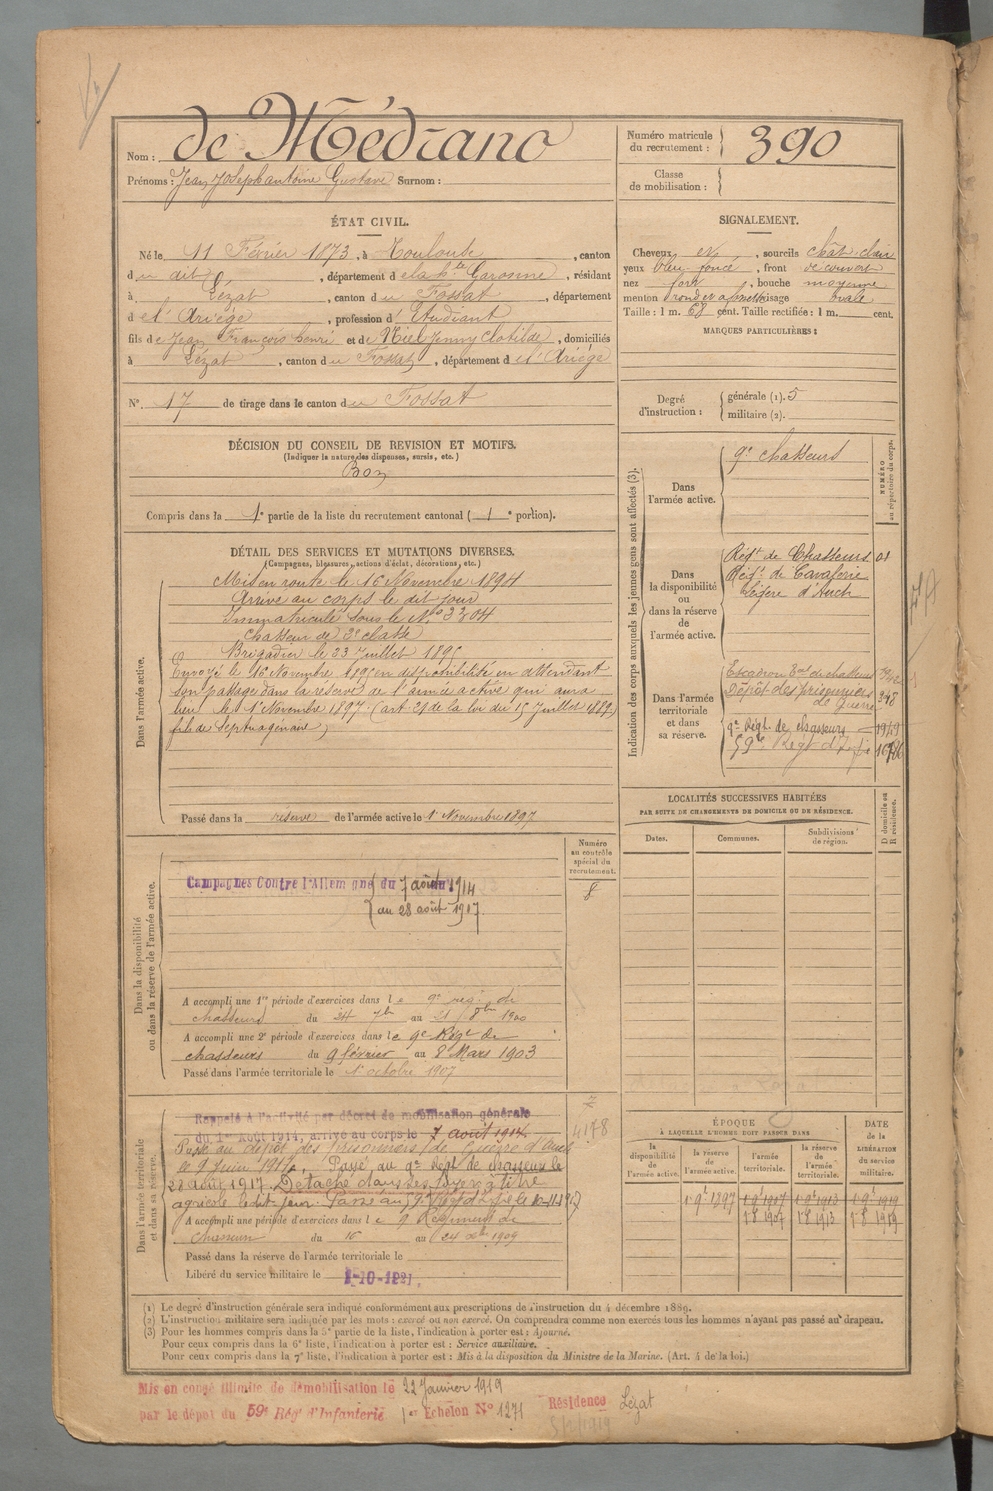 Nom : de Médrano
Prénoms : Jean Joseph antoine Gustave Surnom :
Numéro matricule du recrutement : 390
Classe de mobilisation :
ÉTAT CIVIL.
Né le 11 Février 1873, à Toulouse, canton
du dit, département de la hte Garonne, résidant
à Lézat, canton du Fossat, département
de l'Ariège, profession d'Etudiant
fils de Jean François henri et de Niel Jenny Clotilde, domiciliés
à Lézat, canton du Fossat, département de l'Ariège
N° 17 de tirage dans le canton du Fossat
SIGNALEMENT.
Cheveux et, sourcils chât. clair
yeux bleu foncé, front découvert
nez fort, bouche moyenne
menton rond et visage ovale
Taille : 1 m. 68 cent. Taille rectifiée : 1 m. cent.
MARQUES PARTICULIÈRES :
Degré d'instruction : générale (1). 5
militaire (2).
DÉCISION DU CONSEIL DE REVISION ET MOTIFS.
(Indiquer la nature des dispenses, sursis, etc.)
Bon
Compris dans la 1e partie de la liste du recrutement cantonal (1e portion).
DÉTAIL DES SERVICES ET MUTATIONS DIVERSES.
(Campagnes, blessures, actions d'éclat, décorations, etc.)
Dans l'armée active.
Mis en route le 16 Novembre 1894
Arrivé au corps le dit jour
Immatriculé sous le N° 3304
chasseur de 2e classe
Brigadier le 23 Juillet 1895
Envoyé le 16 Novembre 1895 en disponibilité en attendant
son passage dans la réserve de l'armée active qui aura
lieu le 1er Novembre 1897. (art. 21 de la loi du 15 Juillet 1889,
fils de Septuagénaire)
Passé dans la réserve de l'armée active le 1er Novembre 1897
Indication des corps auxquels les jeunes gens sont affectés (3).
NUMÉRO au répertoire du corps.
Dans l'armée active.
9e chasseurs
Dans la disponibilité ou dans la réserve de l'armée active.
Régt de Chasseurs 01
Régt de Cavalerie
Légère d'Auch
Dans l'armée territoriale et dans sa réserve.
Escadron Tal de chasseurs
Dépôt des prisonniers de Guerre 348
9e Régt de chasseurs 1949
59e Régt d'Infie
LOCALITÉS SUCCESSIVES HABITÉES
PAR SUITE DE CHANGEMENTS DE DOMICILE OU DE RÉSIDENCE.
Dates. Communes. Subdivisions de région. D domicile ou R résidence.
Dans la disponibilité ou dans la réserve de l'armée active.
Numéro au contrôle spécial du recrutement.
8
Campagnes Contre l'Allemagne du 7 août 1914
au 28 août 1917.
A accompli une 1re période d'exercices dans le 9e rég. de
chasseurs du 24 7bre au 21 8bre 1900
A accompli une 2e période d'exercices dans le 9e Régt de
chasseurs du 9 février au 8 Mars 1903
Passé dans l'armée territoriale le 1er octobre 1907
Dans l'armée territoriale et dans sa réserve.
4178
Rappelé à l'activité par décret de mobilisation générale
du 1er Août 1914, arrivé au corps le 7 août 1914.
Passé au dépôt des Prisonniers de Guerre d'Auch
le 9 Juin 1916. Passé au 9e Régt de chasseurs le
28 août 1917. Détaché dans ses foyers à titre
agricole le dit jour. Passé au Régt d'Infie le 10-11-1917
A accompli une période d'exercices dans le 9 Régiment de
chasseurs du 16 au 24 1909
Passé dans la réserve de l'armée territoriale le
Libéré du service militaire le 1-10-1921.
ÉPOQUE
À LAQUELLE L'HOMME DOIT PASSER DANS
la disponibilité de l'armée active. la réserve de l'armée active. l'armée territoriale. la réserve de l'armée territoriale.
DATE de la LIBÉRATION du service militaire.
1 9e 1897 1 9e 1907 1 9e 1913 1 9e 1919
1 8 1907 1 8 1913 1 8 1919
(1) Le degré d'instruction générale sera indiqué conformément aux prescriptions de l'instruction du 4 décembre 1889.
(2) L'instruction militaire sera indiquée par les mots : exercé ou non exercé. On comprendra comme non exercés tous les hommes n'ayant pas passé au drapeau.
(3) Pour les hommes compris dans la 5e partie de la liste, l'indication à porter est : Ajourné.
Pour ceux compris dans la 6e liste, l'indication à porter est : Service auxiliaire.
Pour ceux compris dans la 7e liste, l'indication à porter est : Mis à la disposition du Ministre de la Marine. (Art. 4 de la loi.)
Mis en congé illimité de démobilisation le 22 Janvier 1919
par le dépôt du 59e Régt d'Infanterie 1er Echelon N° 1271 Résidence Lézat